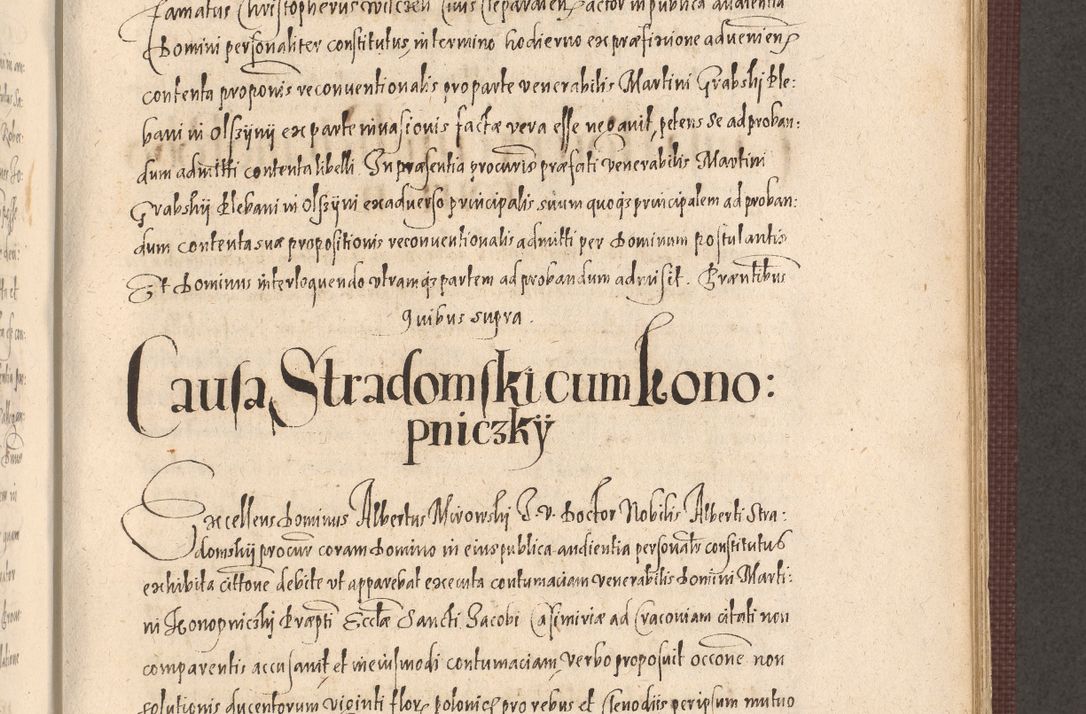 Famatus Christopherus Wilczek Civis Clepardien Factor in publica audientia
Domini personaliter constitutus in termino hodierno ex præfixione advenien
contenta proponis reconventionalis pro parte venerabilis Martini Grabskj Ple:
bani in Olszynij ex parte invasionis factæ vera esse negavit, petens se ad proban:
dum admitti contenta libelli. In præsentia procuris præfati venerabilis Martini
Grabskij Plebani in Olszijni ex adverso principalis suum quoqz principalem ad proban:
dum contenta suæ propositionis reconventionalis admitti per Dominum postulantis
Et Dominus interloquendo utramqz partem ad probandum admisit. Præntibus
quibus supra.
Causa Stradomski cum Kono:
pniczkÿ
Excellens Dominus Albertus Mirowskij J. v. Doctor Nobilis Alberti Stra:
domskij procur coram Domino in eius publica audientia personalr constitutus
exhibita cittone debite ut apparebat executa contumaciam venerabilis Domini Marti:
ni Konopniczkj Præpti Ecclæ Sancti Jacobi Casimiriæ ad Cracoviam citati non
comparentis accusavit et in eiusmodi contumaciam verbo proposuit occone non
solutionis ducentorum viginti flor polonic pro rebus et clenodiis per ipsum mutuo